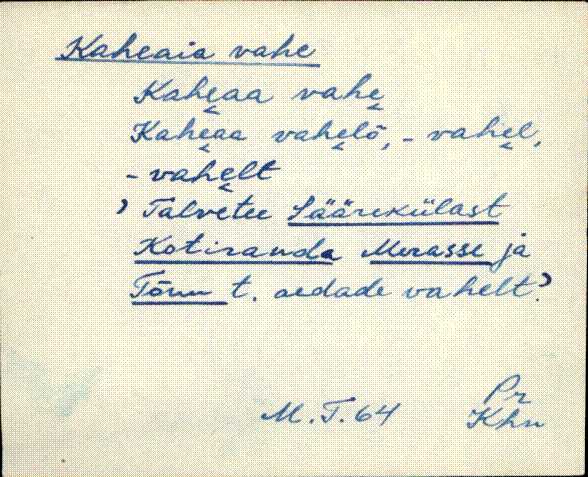 Kaheaia vahe
Kahe̬aa vahe̬
Kahe̬aa vahe̬lõ, - vahe̬l,
- vahe̬lt
) Talvetee Säärekülast
Kotiranda Merasse ja
Tõnu t. aedade vahelt.)
M.T. 64
Pr
Khn